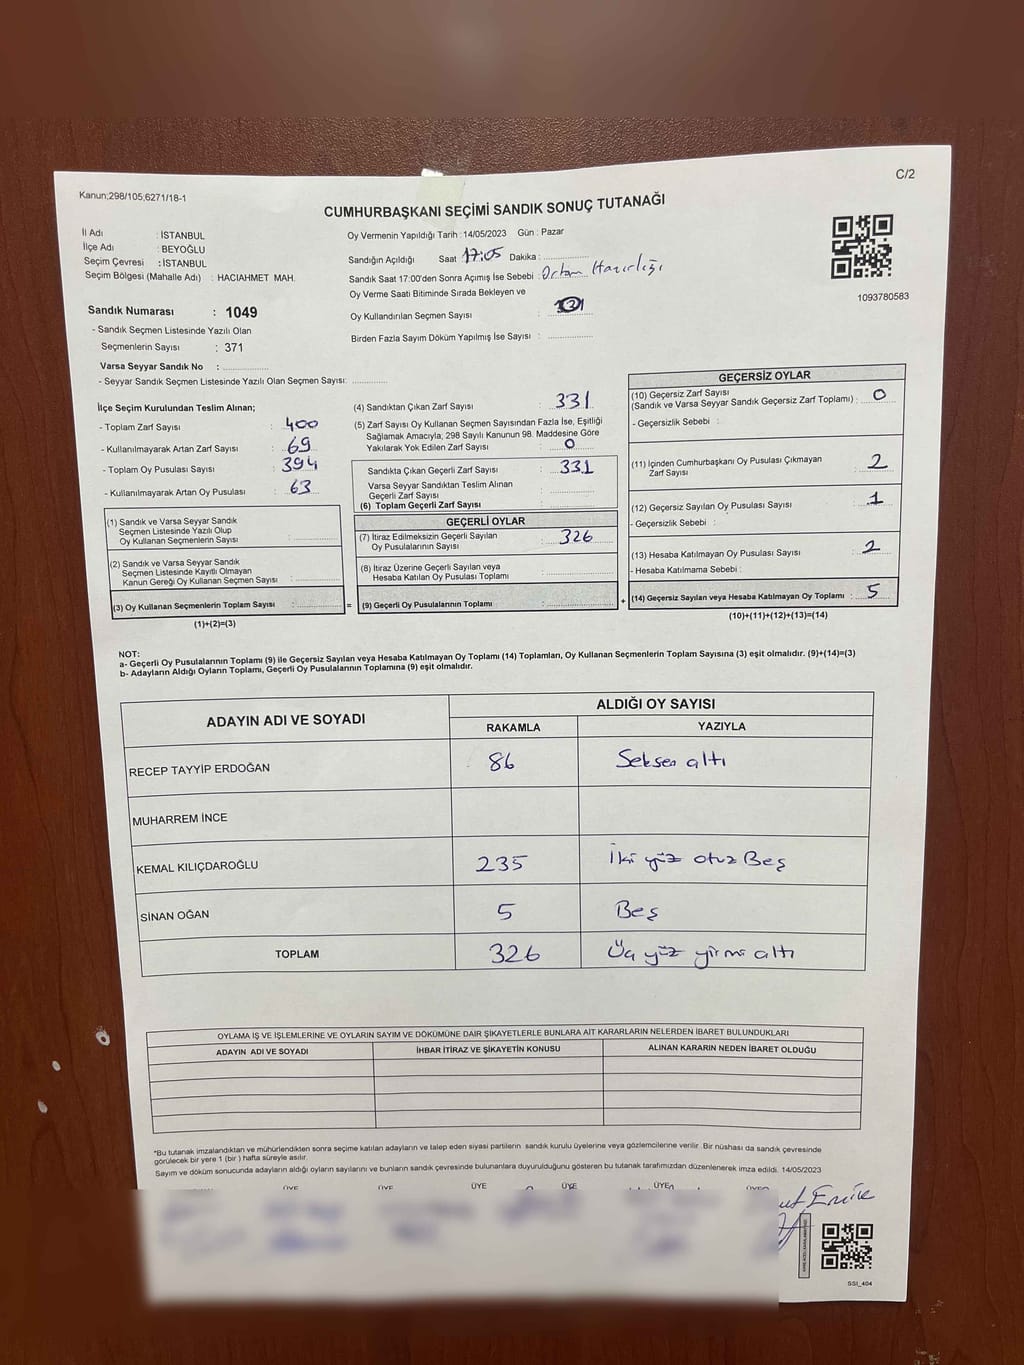 Kanun;298/105;6271/18-1
C/2
CUMHURBAŞKANI SEÇİMİ SANDIK SONUÇ TUTANAĞI
İl Adı : İSTANBUL
İlçe Adı : BEYOĞLU
Seçim Çevresi : İSTANBUL
Seçim Bölgesi (Mahalle Adı) : HACIAHMET MAH.
Sandık Numarası : 1049
- Sandık Seçmen Listesinde Yazılı Olan
Seçmenlerin Sayısı : 371
Varsa Seyyar Sandık No :
- Seyyar Sandık Seçmen Listesinde Yazılı Olan Seçmen Sayısı:
Oy Vermenin Yapıldığı Tarih : 14/05/2023 Gün : Pazar
Sandığın Açıldığı Saat 17:05 Dakika :
Sandık Saat 17:00'den Sonra Açımış İse Sebebi : Ortam Hazırlığı
Oy Verme Saati Bitiminde Sırada Bekleyen ve
Oy Kullandırılan Seçmen Sayısı :
Birden Fazla Sayım Döküm Yapılmış İse Sayısı :
1093780583
İlçe Seçim Kurulundan Teslim Alınan;
- Toplam Zarf Sayısı : 400
- Kullanılmayarak Artan Zarf Sayısı : 69
- Toplam Oy Pusulası Sayısı : 394
- Kullanılmayarak Artan Oy Pusulası : 63
(1) Sandık ve Varsa Seyyar Sandık
Seçmen Listesinde Yazılı Olup
Oy Kullanan Seçmenlerin Sayısı :
(2) Sandık ve Varsa Seyyar Sandık
Seçmen Listesinde Kayıtlı Olmayan
Kanun Gereği Oy Kullanan Seçmen Sayısı :
(3) Oy Kullanan Seçmenlerin Toplam Sayısı :
(1)+(2)=(3)
(4) Sandıktan Çıkan Zarf Sayısı : 331
(5) Zarf Sayısı Oy Kullanan Seçmen Sayısından Fazla İse, Eşitliği
Sağlamak Amacıyla; 298 Sayılı Kanunun 98. Maddesine Göre
Yakılarak Yok Edilen Zarf Sayısı : 0
Sandıkta Çıkan Geçerli Zarf Sayısı : 331
Varsa Seyyar Sandıktan Teslim Alınan
Geçerli Zarf Sayısı :
(6) Toplam Geçerli Zarf Sayısı :
GEÇERLİ OYLAR
(7) İtiraz Edilmeksizin Geçerli Sayılan
Oy Pusulalarının Sayısı : 326
(8) İtiraz Üzerine Geçerli Sayılan veya
Hesaba Katılan Oy Pusulası Toplamı :
= (9) Geçerli Oy Pusulalarının Toplamı :
GEÇERSİZ OYLAR
(10) Geçersiz Zarf Sayısı
(Sandık ve Varsa Seyyar Sandık Geçersiz Zarf Toplamı) : 0
- Geçersizlik Sebebi :
(11) İçinden Cumhurbaşkanı Oy Pusulası Çıkmayan
Zarf Sayısı : 2
(12) Geçersiz Sayılan Oy Pusulası Sayısı : 1
- Geçersizlik Sebebi :
(13) Hesaba Katılmayan Oy Pusulası Sayısı : 2
- Hesaba Katılmama Sebebi :
+ (14) Geçersiz Sayılan veya Hesaba Katılmayan Oy Toplamı : 5
(10)+(11)+(12)+(13)=(14)
NOT:
a- Geçerli Oy Pusulalarının Toplamı (9) ile Geçersiz Sayılan veya Hesaba Katılmayan Oy Toplamı (14) Toplamları, Oy Kullanan Seçmenlerin Toplam Sayısına (3) eşit olmalıdır. (9)+(14)=(3)
b- Adayların Aldığı Oyların Toplamı, Geçerli Oy Pusulalarının Toplamına (9) eşit olmalıdır.
ADAYIN ADI VE SOYADI
ALDIĞI OY SAYISI
RAKAMLA YAZIYLA
RECEP TAYYİP ERDOĞAN 86 Seksen altı
MUHARREM İNCE
KEMAL KILIÇDAROĞLU 235 İki yüz otuz Beş
SİNAN OĞAN 5 Beş
TOPLAM 326 Üç yüz yirmi altı
OYLAMA İŞ VE İŞLEMLERİNE VE OYLARIN SAYIM VE DÖKÜMÜNE DAİR ŞİKAYETLERLE BUNLARA AİT KARARLARIN NELERDEN İBARET BULUNDUKLARI
ADAYIN ADI VE SOYADI İHBAR İTİRAZ VE ŞİKAYETİN KONUSU ALINAN KARARIN NEDEN İBARET OLDUĞU
*Bu tutanak imzalandıktan ve mühürlendikten sonra seçime katılan adayların ve talep eden siyasi partilerin sandık kurulu üyelerine veya gözlemcilerine verilir. Bir nüshası da sandık çevresinde
görülecek bir yere 1 (bir ) hafta süreyle asılır.
Sayım ve döküm sonucunda adayların aldığı oyların sayılarını ve bunların sandık çevresinde bulunanlara duyurulduğunu gösteren bu tutanak tarafımızdan düzenlenerek imza edildi. 14/05/2023
ÜYE ÜYE ÜYE ÜYE ÜYE ÜYE
SSI_404